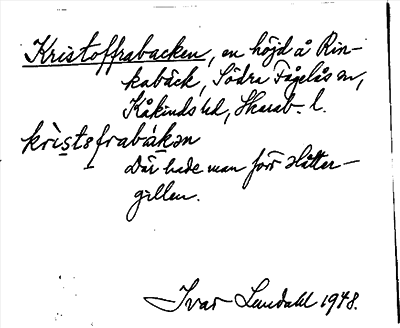 Kristoffrabacken, en höjd å Rin-
kabäck, Södra Fågelås sn,
Kåkinds hd, Skarab. l.
kristsfrabakən
Där hade man förr slåtter-
gillen.
Ivar Lundahl 1948.